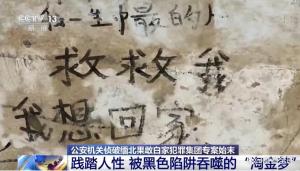 CCTV 13
一生中最自的人
救救我
我想回家
公安机关侦破缅北果敢白家犯罪集团专案始末
践踏人性 被黑色陷阱吞噬的“淘金梦”